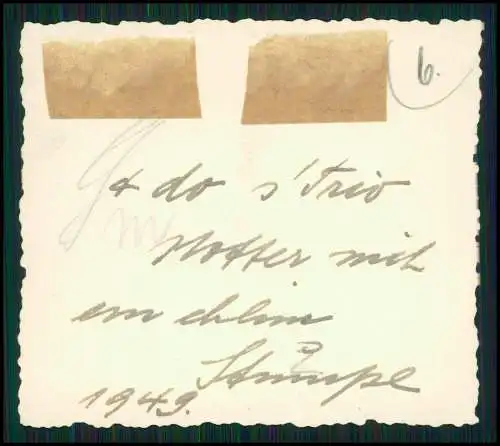 6.
& do s'Trio
Motter mit
em chline
Stumpe
1949.